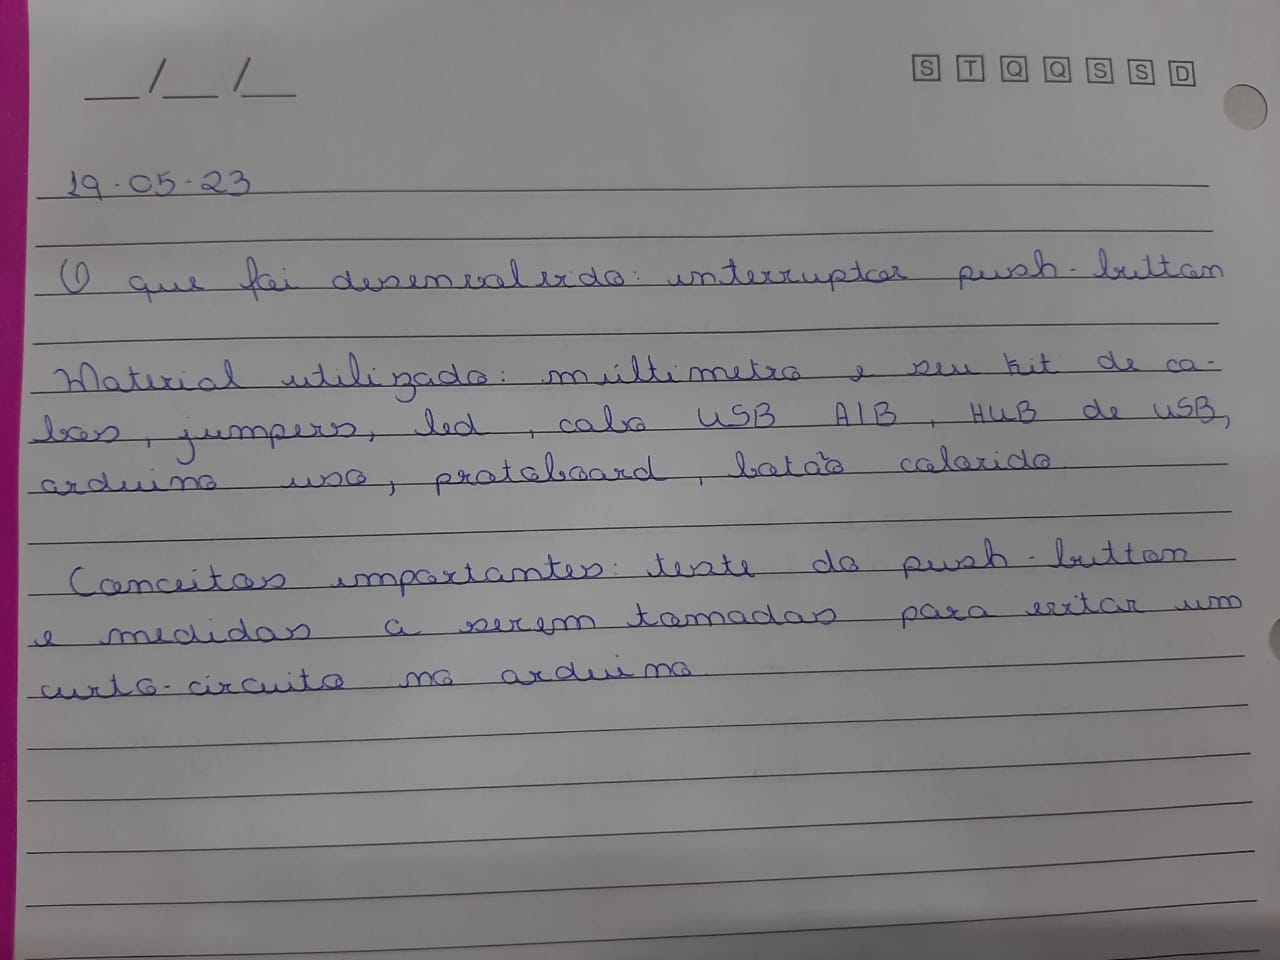 __/__/__
S T Q Q S S D
19.05.23
O que foi desenvolvido: interruptor push-button
Material utilizado: multimetro e seu kit de ca-
bos, jumpers, led, cabo USB A/B, HUB de USB,
arduino uso, protoboard, botão colorido
Conceitos importantes: teste do push-button
e medidas a serem tomadas para evitar um
curto-circuito no arduino.